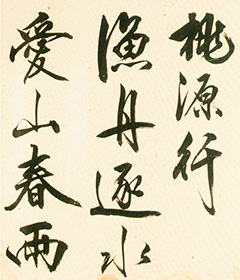 桃源行
漁舟逐水
愛山春兩